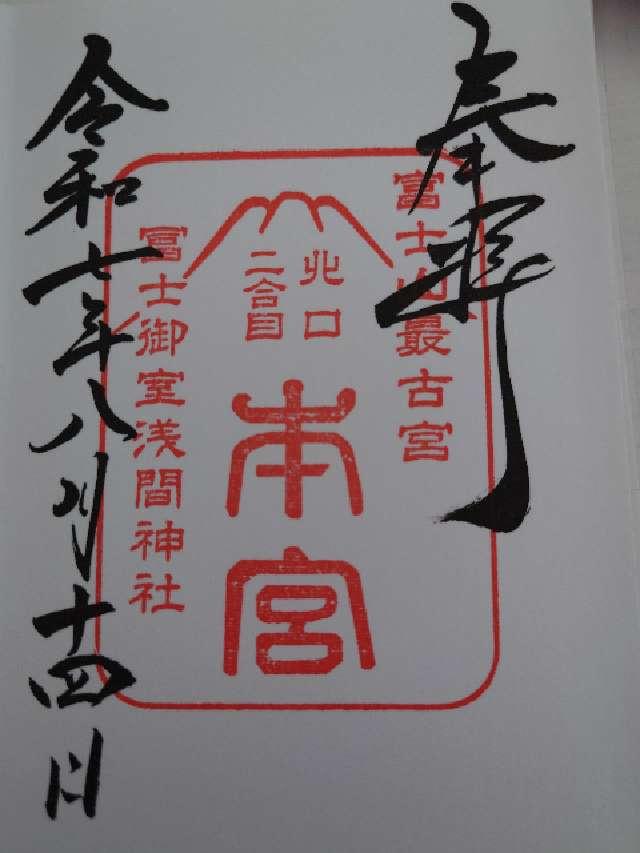 奉拝
富士山最古宮
北口
二合目
本宮
冨士御室浅間神社
令和七年八月十四日